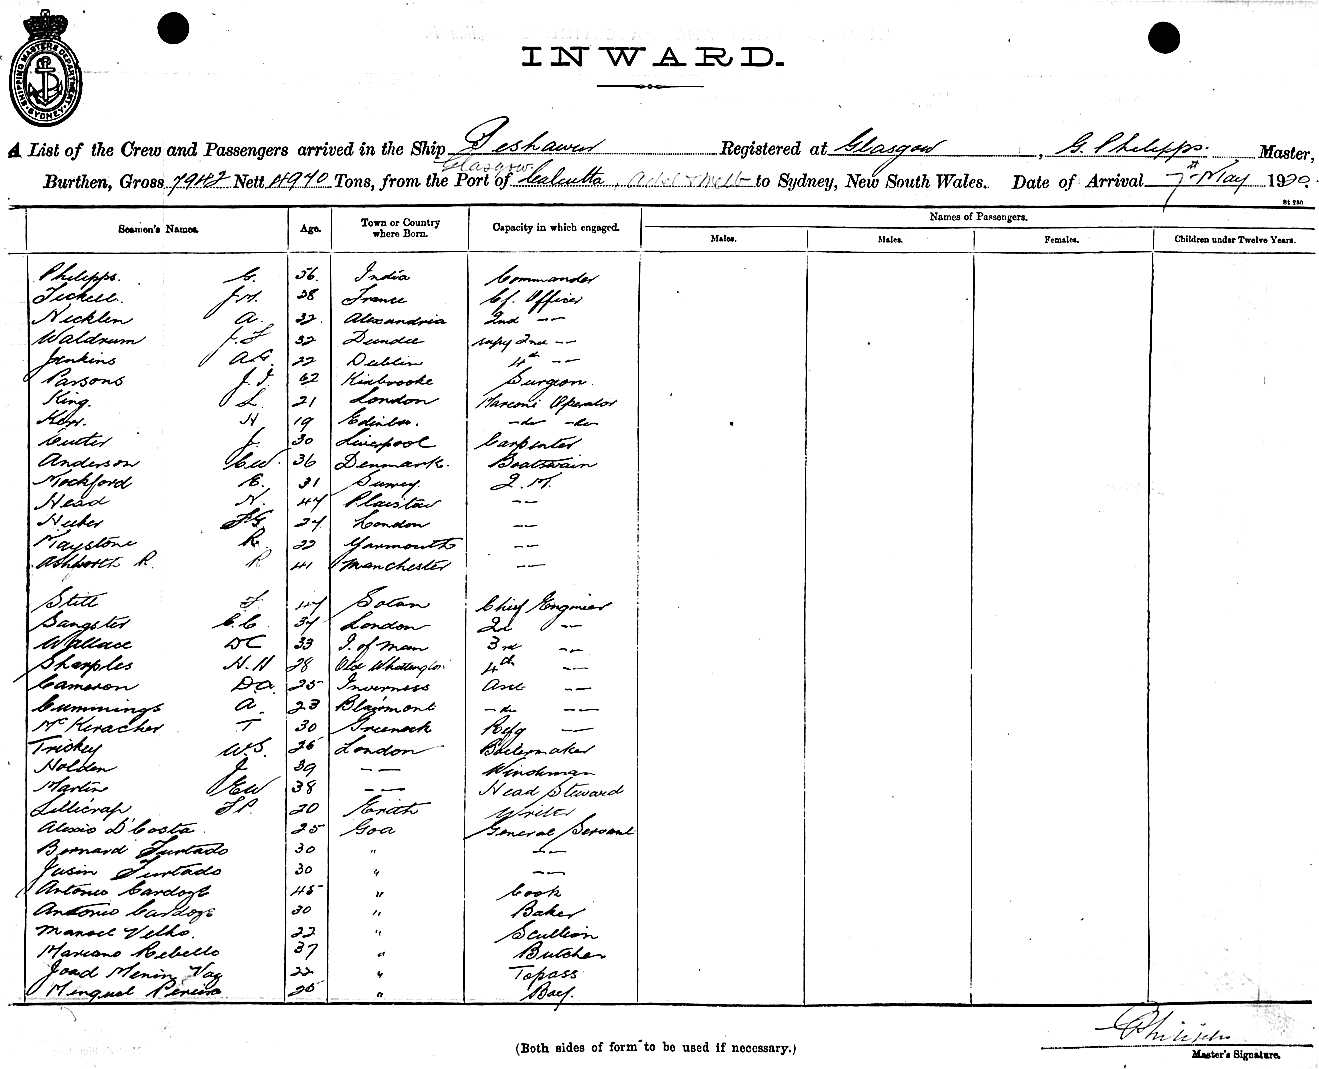 SHIPPING MASTERS DEPARTMENT SYDNEY
INWARD.
A List of the Crew and Passengers arrived in the Ship Peshawur Registered at Glasgow, G. Philipps. Master,
Glasgow
Burthen, Gross 7942 Nett 4940 Tons, from the Port of Calcutta Adel & Melb to Sydney, New South Wales. Date of Arrival 7th May 1920.
Seamen's Names. Age. Town or Country where Born. Capacity in which engaged. Names of Passengers.
Males. Males. Females. Children under Twelve Years.
Philipps. G. 56. India Commander
Tickell. J.M. 28 France Cf. Officer
Necklen A. 32. Alexandria 2nd -- --
Waldrum J.F 32 Dundee supy 2nd -- --
Jenkins A.G. 22 Dublin 4th -- --
Parsons J.J. 62 Kidbrooke Surgeon.
King. L. 21 London Marconi Operator
Kerr. H 19 Edinbro. -do- -do-
Cutter J. 30 Liverpool Carpenter
Anderson C.W. 36 Denmark. Boatswain
Mockford E. 31 Surrey. Q.M.
Head N. 47 Plaistow -- --
Huber F.G. 27 London -- --
Maystone R. 22 Yarmouth -- --
Ashworth R. R 41 Manchester -- --
Still F 47 Chief Engineer
Sangster C.C. 37 London 2d --
Wallace DC 33 I. of Man 3rd --
Sharples H.H 28 Old Whittington 4th --
Cameron DA. 25 Inverness Asst --
Cummings A. 23 Blairmont -do- --
McKeracher T 30 Greenock Refg --
Trickey W.S. 26 London Boilermaker
Holden J. 39 -- -- Winchman
Martin EW 38 -- -- Head Steward
Lillicrap F.P. 20 Erith Writer
Alexio D'Costa. 25 Goa General Servant
Bernard Furtado 30 " -- --
Jusin Furtado 30 " -- --
Antonio Cardoze 45 " Cook
Antonio Cardoze 30 " Baker
Manoel Velho. 22 " Scullion
Mariano Rebello 37 " Butcher
Joao Menin Vaz 22 " Topass
Minguel Pereira 25 " Boy.
GPhilipps
(Both sides of form to be used if necessary.)
Master's Signature.